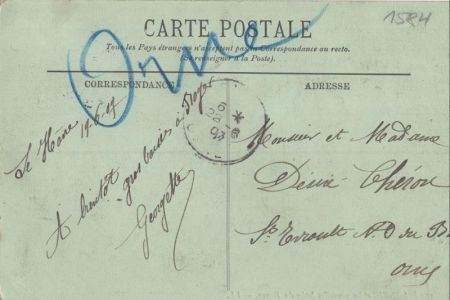 1584
Orne
CARTE POSTALE
Tous les Pays étrangers n'acceptent pas la Correspondance au recto.
(Se renseigner à la Poste).
CORRESPONDANCE
ADRESSE
Le Havre
19-6-05
A bientôt
gros baisers à Roger
Georgette
Monsieur et Madame
Chéron
St Evroult N.D du B
Orne